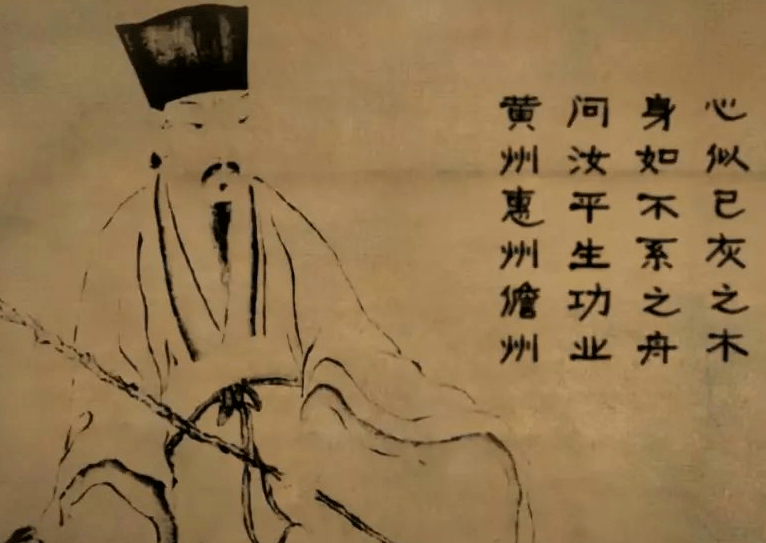 心似已灰之木
身如不系之舟
问汝平生功业
黄州惠州儋州